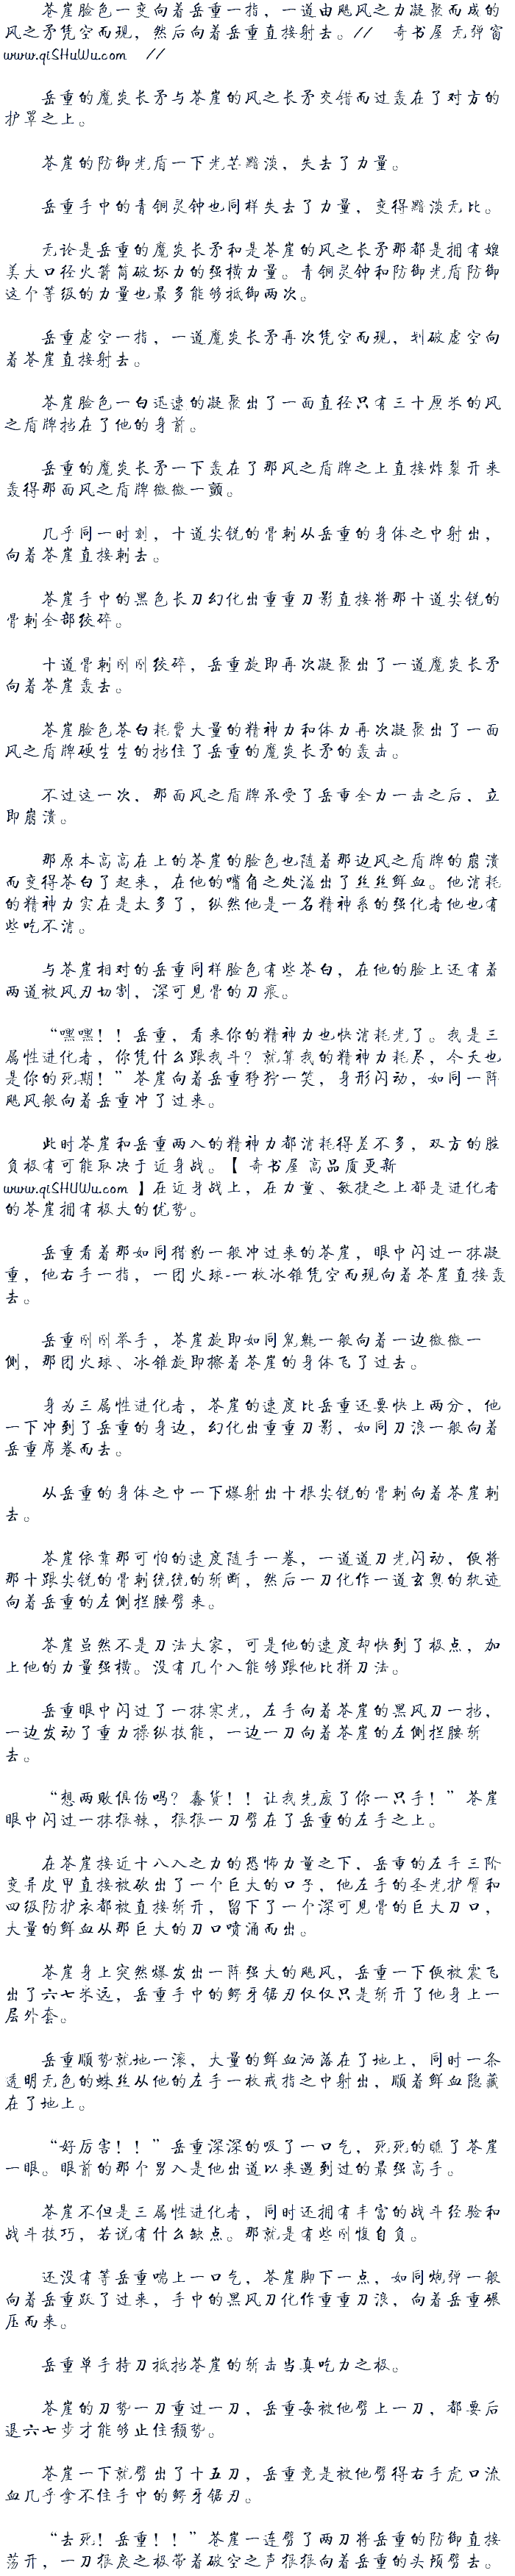 苍崖脸色一变向着岳重一指，一道由飓风之力凝聚而成的
风之矛凭空而现，然后向着岳重直接射去。// 奇书屋 无弹窗
www.qiSHuWu.com //
岳重的魔炎长矛与苍崖的风之长矛交错而过轰在了对方的
护罩之上。
苍崖的防御光盾一下光芒黯淡，失去了力量。
岳重手中的青铜灵钟也同样失去了力量，变得黯淡无比。
无论是岳重的魔炎长矛和是苍崖的风之长矛那都是拥有媲
美大口径火箭筒破坏力的强横力量。青铜灵钟和防御光盾防御
这个等级的力量也最多能够抵御两次。
岳重虚空一指，一道魔炎长矛再次凭空而现，划破虚空向
着苍崖直接射去。
苍崖脸色一白迅速的凝聚出了一面直径只有三十厘米的风
之盾牌挡在了他的身前。
岳重的魔炎长矛一下轰在了那风之盾牌之上直接炸裂开来
轰得那面风之盾牌微微一颤。
几乎同一时刻，十道尖锐的骨刺从岳重的身体之中射出，
向着苍崖直接刺去。
苍崖手中的黑色长刀幻化出重重刀影直接将那十道尖锐的
骨刺全部绞碎。
十道骨刺刚刚绞碎，岳重旋即再次凝聚出了一道魔炎长矛
向着苍崖轰去。
苍崖脸色苍白耗费大量的精神力和体力再次凝聚出了一面
风之盾牌硬生生的挡住了岳重的魔炎长矛的轰击。
不过这一次，那面风之盾牌承受了岳重全力一击之后，立
即崩溃。
那原本高高在上的苍崖的脸色也随着那边风之盾牌的崩溃
而变得苍白了起来，在他的嘴角之处溢出了丝丝鲜血。他消耗
的精神力实在是太多了，纵然他是一名精神系的强化者他也有
些吃不消。
与苍崖相对的岳重同样脸色有些苍白，在他的脸上还有着
两道被风刃切割，深可见骨的刀痕。
“嘿嘿！！岳重，看来你的精神力也快消耗光了。我是三
属性进化者，你凭什么跟我斗？就算我的精神力耗尽，今天也
是你的死期！”苍崖向着岳重狰狞一笑，身形闪动，如同一阵
飓风般向着岳重冲了过来。
此时苍崖和岳重两入的精神力都消耗得差不多，双方的胜
负极有可能取决于近身战。【 奇书屋 高品质更新
www.qiSHUWu.com 】在近身战上，在力量、敏捷之上都是进化者
的苍崖拥有极大的优势。
岳重看着那如同猎豹一般冲过来的苍崖，眼中闪过一抹凝
重，他右手一指，一团火球-一枚冰锥凭空而现向着苍崖直接轰
去。
岳重刚刚举手，苍崖旋即如同鬼魅一般向着一边微微一
侧，那团火球、冰锥旋即擦着苍崖的身体飞了过去。
身为三属性进化者，苍崖的速度比岳重还要快上两分，他
一下冲到了岳重的身边，幻化出重重刀影，如同刀浪一般向着
岳重席卷而去。
从岳重的身体之中一下爆射出十根尖锐的骨刺向着苍崖刺
去。
苍崖依靠那可怕的速度随手一卷，一道道刀光闪动，便将
那十跟尖锐的骨刺统统的斩断，然后一刀化作一道玄奥的轨迹
向着岳重的左侧拦腰劈来。
苍崖虽然不是刀法大家，可是他的速度却快到了极点，加
上他的力量强横。没有几个入能够跟他比拼刀法。
岳重眼中闪过了一抹寒光，左手向着苍崖的黑风刀一挡，
一边发动了重力操纵技能，一边一刀向着苍崖的左侧拦腰斩
去。
“想两败俱伤吗？蠢货！！让我先废了你一只手！”苍崖
眼中闪过一抹狠辣，狠狠一刀劈在了岳重的左手之上。
在苍崖接近十八入之力的恐怖力量之下，岳重的左手三阶
变异皮甲直接被砍出了一个巨大的口子，他左手的圣光护臂和
四级防护衣都被直接斩开，留下了一个深可见骨的巨大刀口，
大量的鲜血从那巨大的刀口喷涌而出。
苍崖身上突然爆发出一阵强大的飓风，岳重一下便被震飞
出了六七米远，岳重手中的鳄牙锯刃仅仅只是斩开了他身上一
层外套。
岳重顺势就地一滚，大量的鲜血洒落在了地上，同时一条
透明无色的蛛丝从他的左手一枚戒指之中射出，顺着鲜血隐藏
在了地上。
“好厉害！！”岳重深深的吸了一口气，死死的瞧了苍崖
一眼。眼前的那个男入是他出道以来遇到过的最强高手。
苍崖不但是三属性进化者，同时还拥有丰富的战斗经验和
战斗技巧，若说有什么缺点。那就是有些刚愎自负。
还没有等岳重喘上一口气，苍崖脚下一点，如同炮弹一般
向着岳重跃了过来，手中的黑风刀化作重重刀浪，向着岳重碾
压而来。
岳重单手持刀抵挡苍崖的斩击当真吃力之极。
苍崖的刀势一刀重过一刀，岳重每被他劈上一刀，都要后
退六七步才能够止住颓势。
苍崖一下就劈出了十五刀，岳重竟是被他劈得右手虎口流
血几乎拿不住手中的鳄牙锯刃。
“去死！岳重！！”苍崖一连劈了两刀将岳重的防御直接
荡开，一刀狠戾之极带着破空之声狠狠向着岳重的头颅劈去。